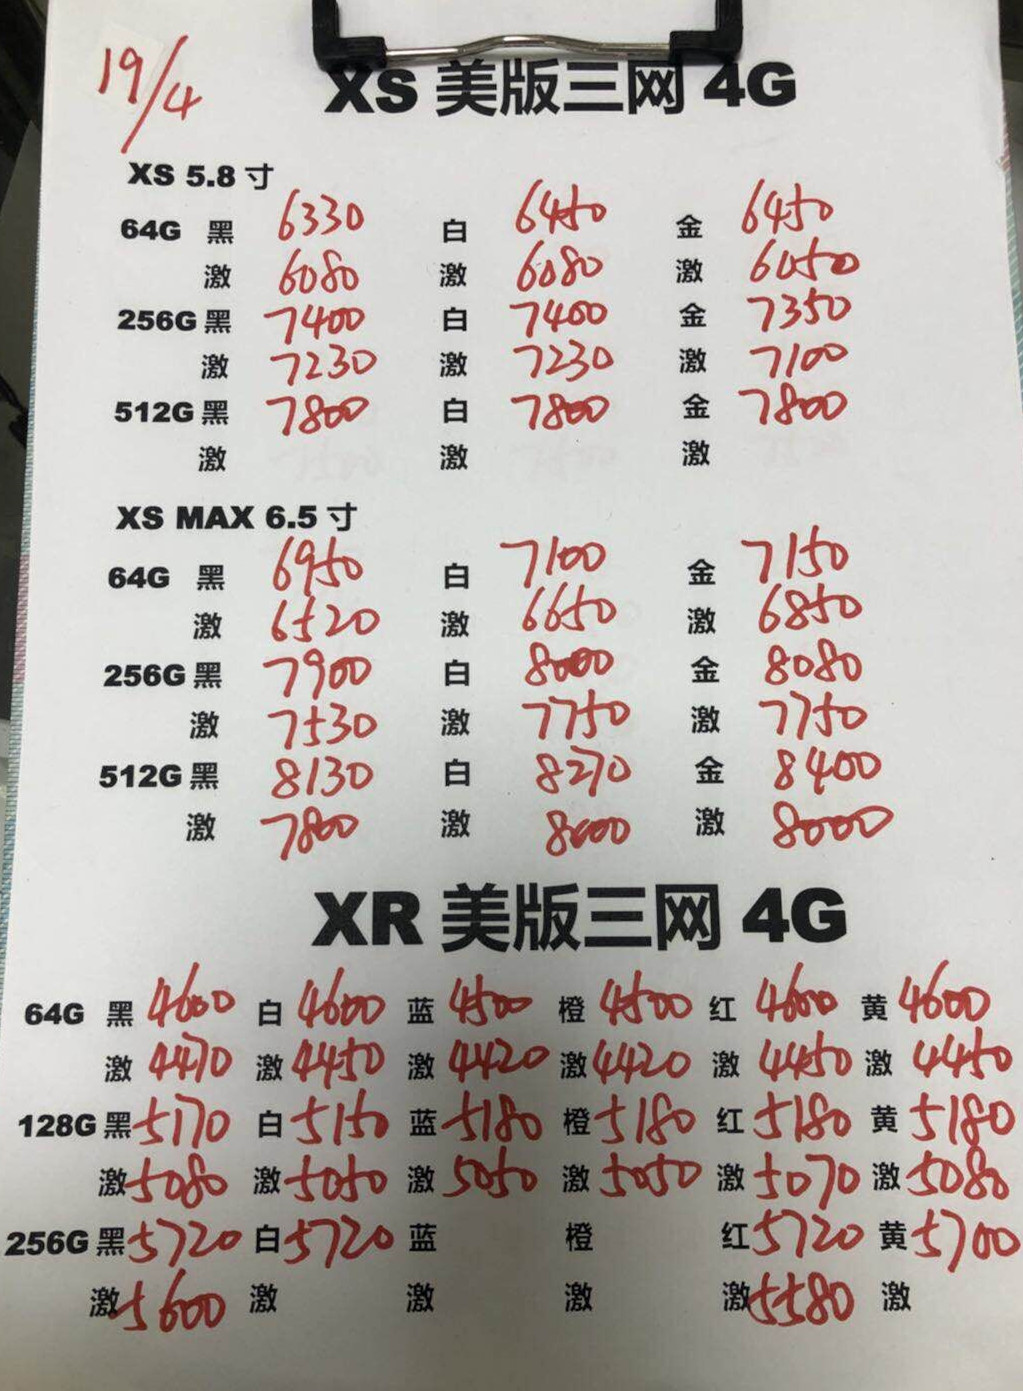 19/4
XS 美版三网 4G
XS 5.8 寸
64G 黑 6330 白 6450 金 6450
激 6080 激 6080 激 6050
256G 黑 7400 白 7400 金 7350
激 7230 激 7230 激 7100
512G 黑 7800 白 7800 金 7800
激 激 激
XS MAX 6.5 寸
64G 黑 6950 白 7100 金 7150
激 6520 激 6650 激 6850
256G 黑 7900 白 8000 金 8080
激 7530 激 7750 激 7750
512G 黑 8130 白 8270 金 8400
激 7800 激 8000 激 8000
XR 美版三网 4G
64G 黑 4600 白 4600 蓝 4500 橙 4500 红 4600 黄 4600
激 4470 激 4450 激 4420 激 4420 激 4450 激 4450
128G 黑 5170 白 5150 蓝 5180 橙 5180 红 5180 黄 5180
激 5080 激 5050 激 5050 激 5050 激 5070 激 5080
256G 黑 5720 白 5720 蓝 橙 红 5720 黄 5700
激 5600 激 激 激 激 5580 激